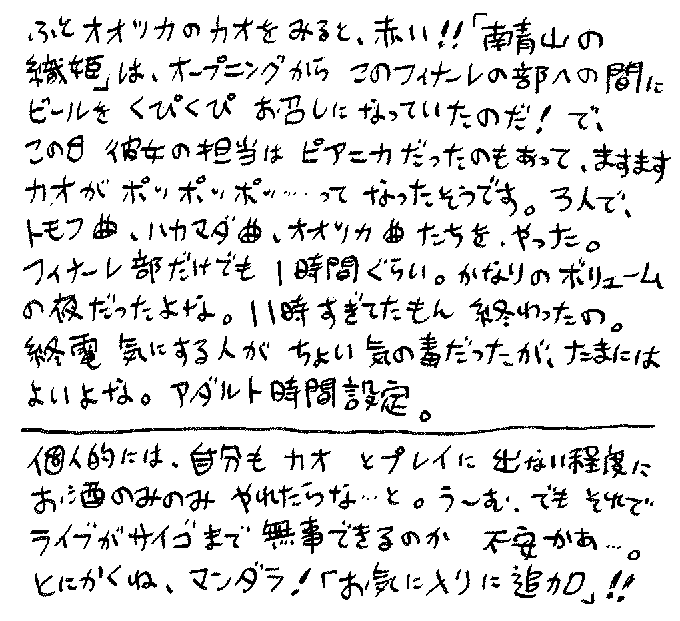 ふとオオツカのカオをみると、赤い!!「南青山の
織姫」は、オープニングから このフィナーレの部への間に
ビールを くぴくぴ お召しになっていたのだ! で、
この日 彼女の担当は ピアニカだったのもあって、ますます
カオが ポッポッポッ…って なったそうです。3人で、
トモフ曲、ハカマダ曲、オオツカ曲 たちを、やった。
フィナーレ部だけでも 1時間ぐらい。かなりのボリューム
の夜だったよな。11時すぎてたもん 終わったの。
終電 気にする人が ちょい気の毒だったが、たまには
よいよな。アダルト時間設定。
個人的には、自分も カオ とプレイに 出ない程度に
お酒のみのみ やれたらな…と。う〜む、でも それで
ライブがサイゴまで 無事できるのか 不安かぁ…。
とにかくね、マンダラ!「お気に入りに追加」!!